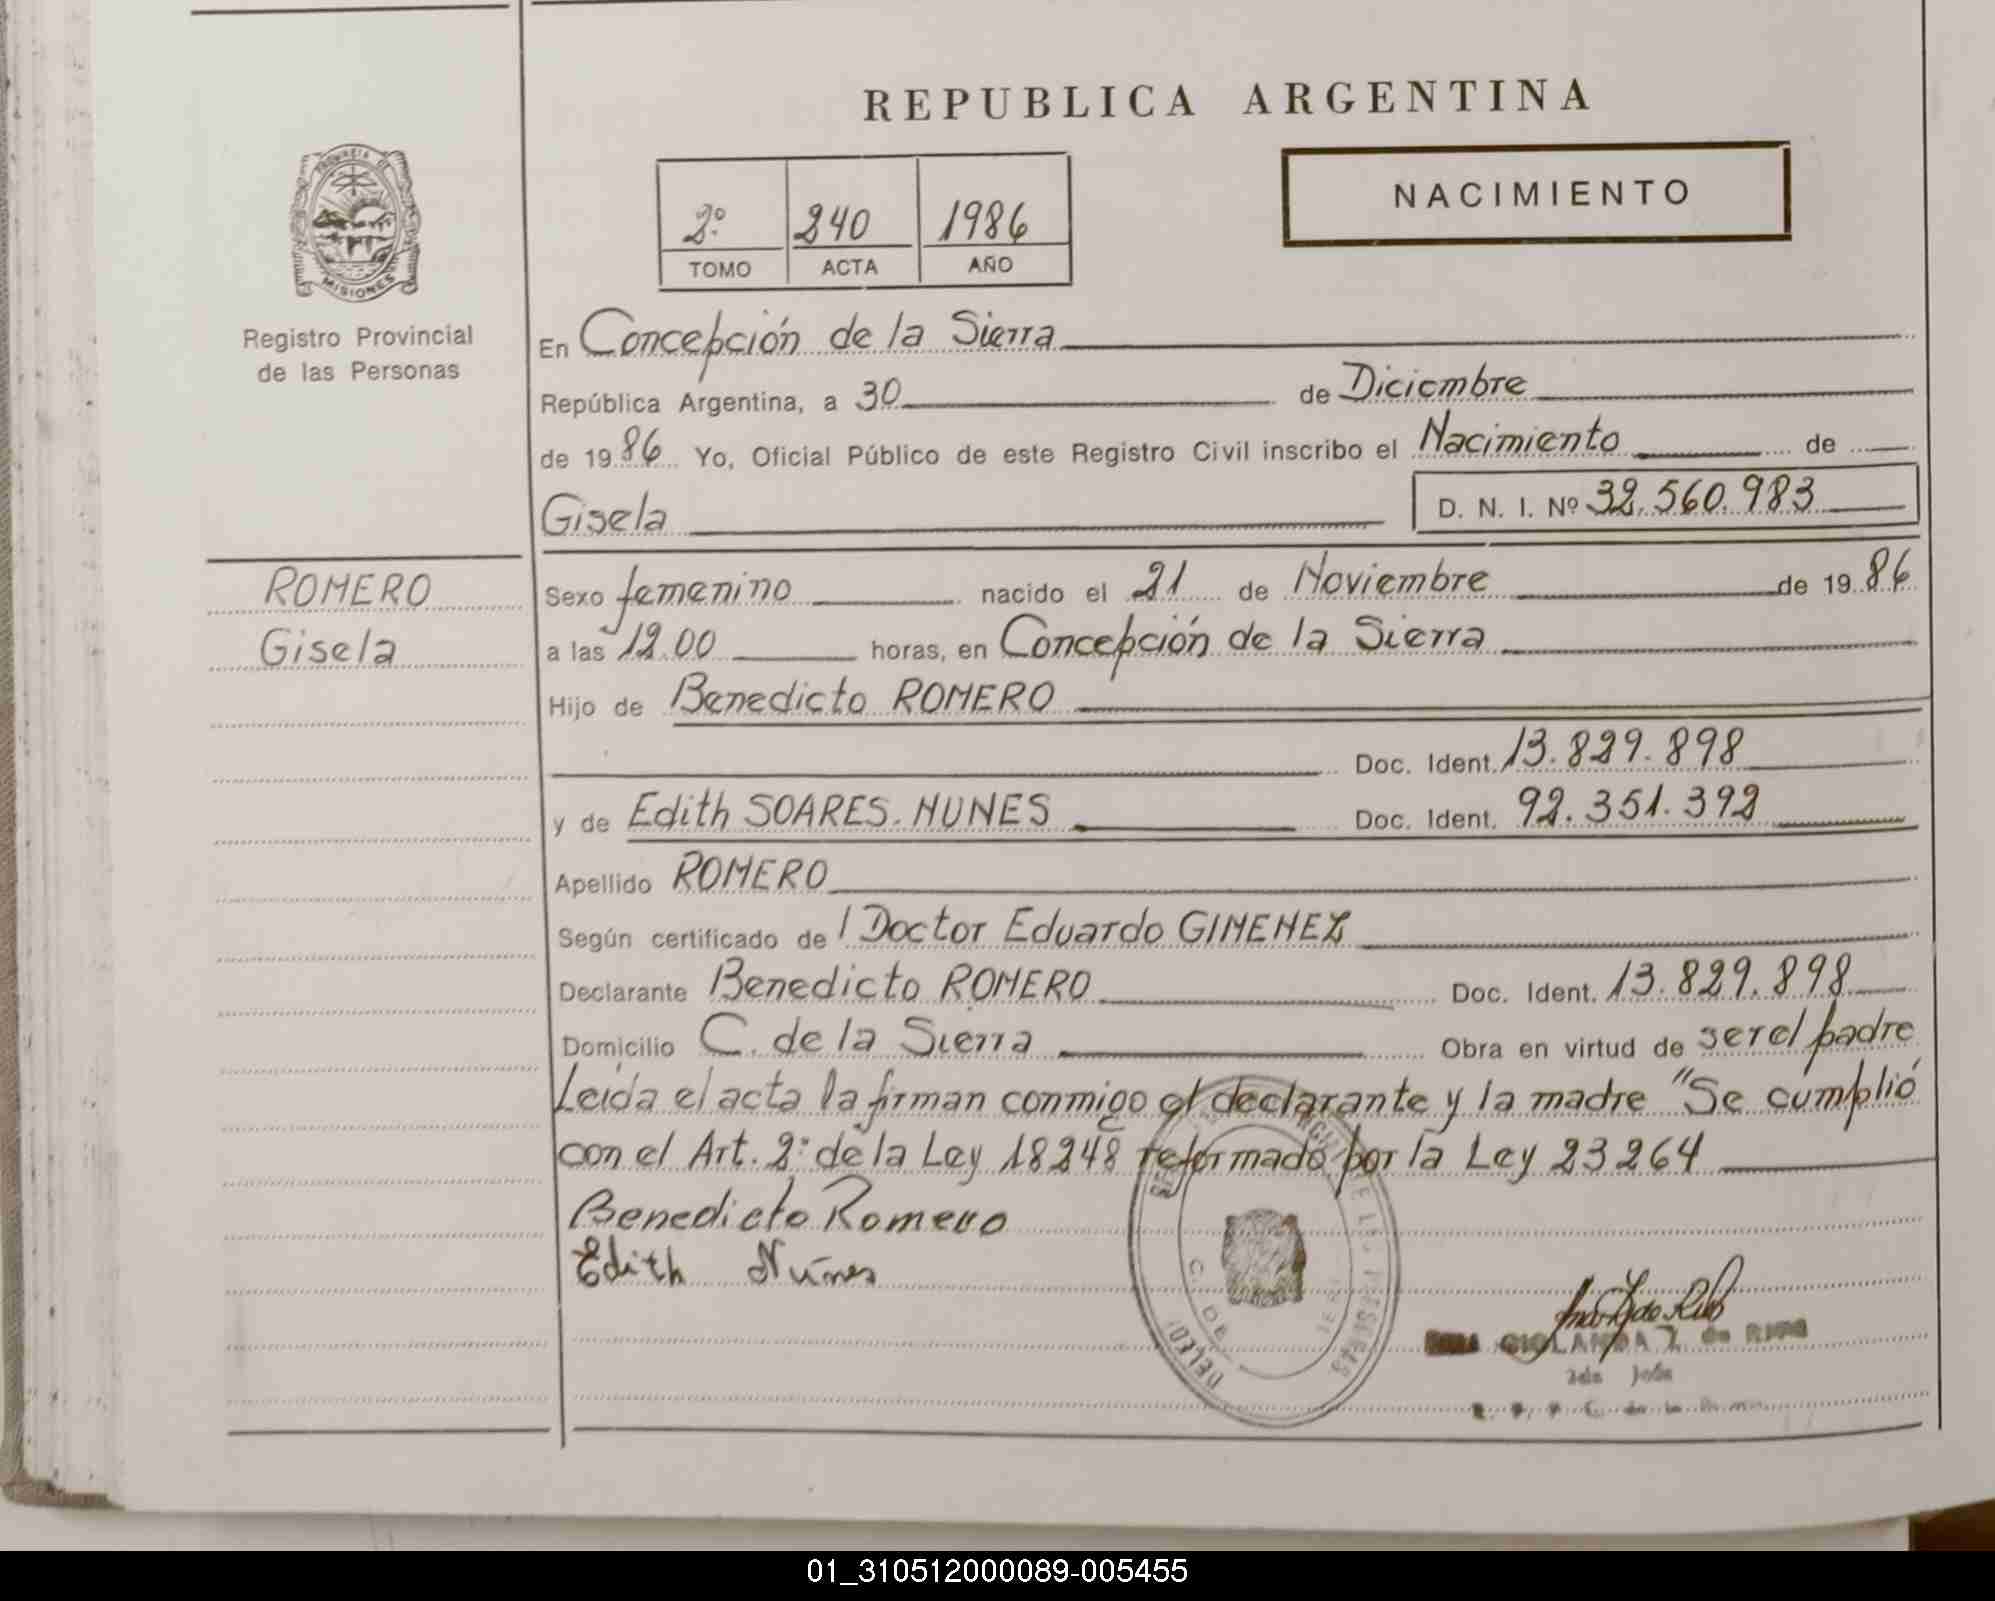 REPUBLICA ARGENTINA
PROVINCIA DE MISIONES
Registro Provincial
de las Personas
2º 240 1986
TOMO ACTA AÑO
NACIMIENTO
En Concepción de la Sierra
República Argentina, a 30 de Diciembre
de 1986 Yo, Oficial Público de este Registro Civil inscribo el Nacimiento de
Gisela D. N. I. Nº 32.560.983
ROMERO
Gisela
Sexo femenino nacido el 21 de Noviembre de 1986
a las 12.00 horas, en Concepción de la Sierra
Hijo de Benedicto ROMERO
Doc. Ident. 13.829.898
y de Edith SOARES. NUNES Doc. Ident. 92.351.392
Apellido ROMERO
Según certificado del Doctor Eduardo GIMENEZ
Declarante Benedicto ROMERO Doc. Ident. 13.829.898
Domicilio C. de la Sierra Obra en virtud de ser el padre
Leída el acta la firman conmigo el declarante y la madre "Se cumplió
con el Art. 2º de la Ley 18248 reformado por la Ley 23264
Benedicto Romero
Edith Nunes
01_310512000089-005455